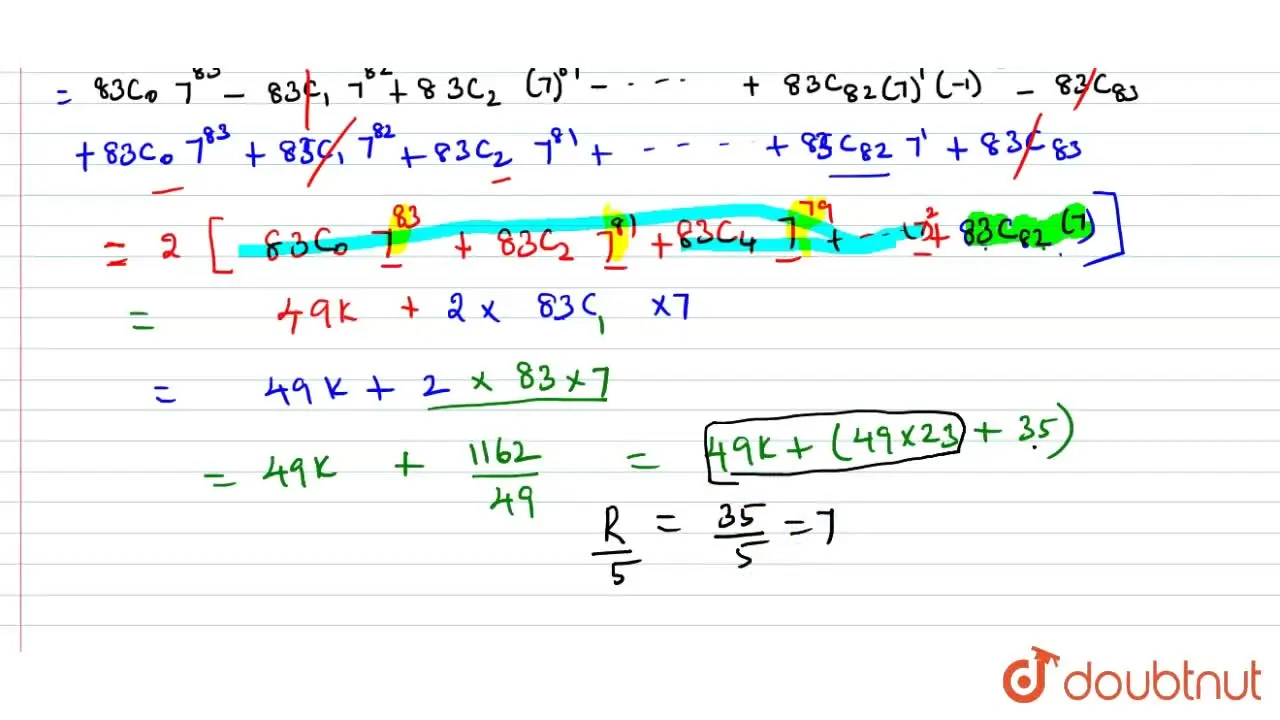 = 83C₀ 7⁸³ − 83C₁ 7⁸² + 83C₂ (7)⁸¹ − - - - - + 83C₈₂ (7)¹ (−1) − 83C₈₃
+ 83C₀ 7⁸³ + 83C₁ 7⁸² + 83C₂ 7⁸¹ + - - - - - + 83C₈₂ 7¹ + 83C₈₃
= 2 [ 83C₀ 7⁸³ + 83C₂ 7⁸¹ + 83C₄ 7⁷⁹ + - - (7)² + 83C₈₂ (7) ]
= 49K + 2 × 83C₁ × 7
= 49K + 2 × 83 × 7
= 49K + 1162/49 = 49K + (49×23 + 35)
R/5 = 35/5 = 7
doubtnut